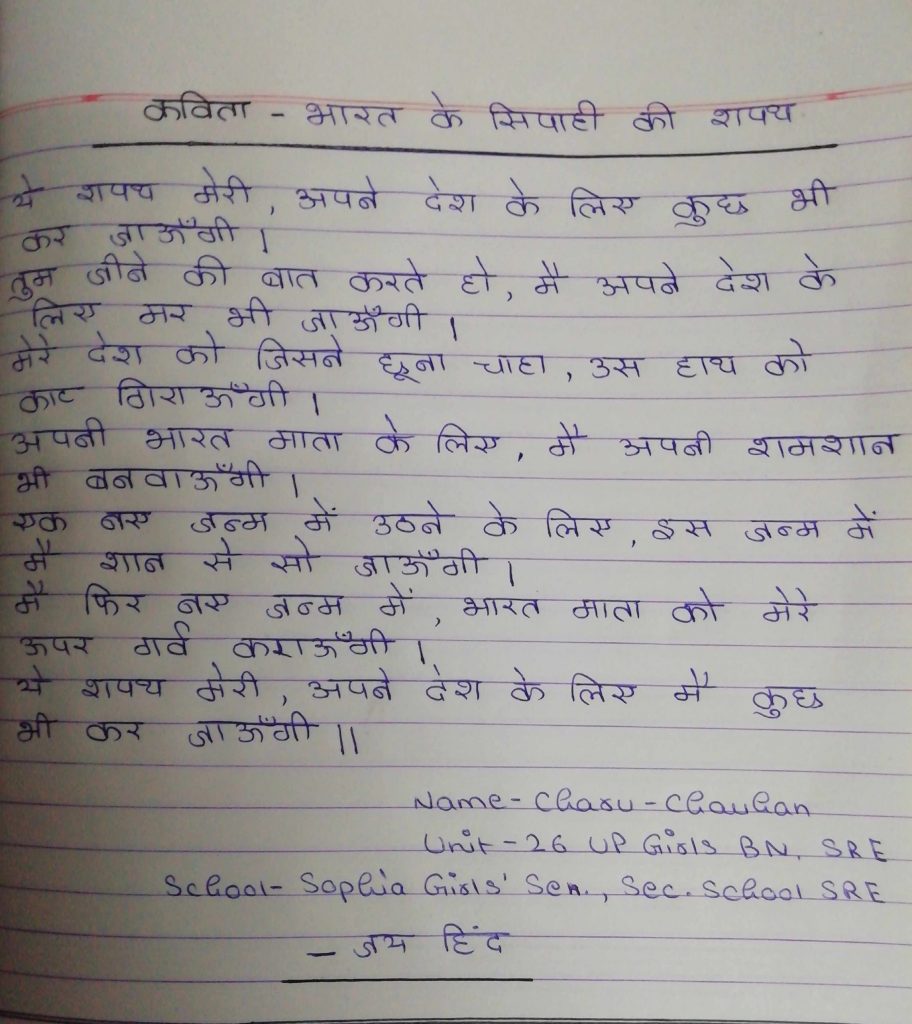 कविता - भारत के सिपाही की शपथ
ये शपथ मेरी, अपने देश के लिए कुछ भी
कर जाऊँगी।
तुम जीने की बात करते हो, मै अपने देश के
लिए मर भी जाऊँगी।
मेरे देश को जिसने छूना चाहा, उस हाथ को
काट गिराऊँगी।
अपनी भारत माता के लिए, मै अपनी शमशान
भी बनवाऊँगी।
एक नए जन्म में उठने के लिए, इस जन्म में
मै शान से सो जाऊँगी।
मै फिर नए जन्म में, भारत माता को मेरे
ऊपर गर्व कराऊँगी।
ये शपथ मेरी, अपने देश के लिए मै कुछ
भी कर जाऊँगी॥
Name- Charu-Chauhan
Unit-26 UP Girls BN. SRE
School- Sophia Girls' Sen., Sec. School SRE
- जय हिंद